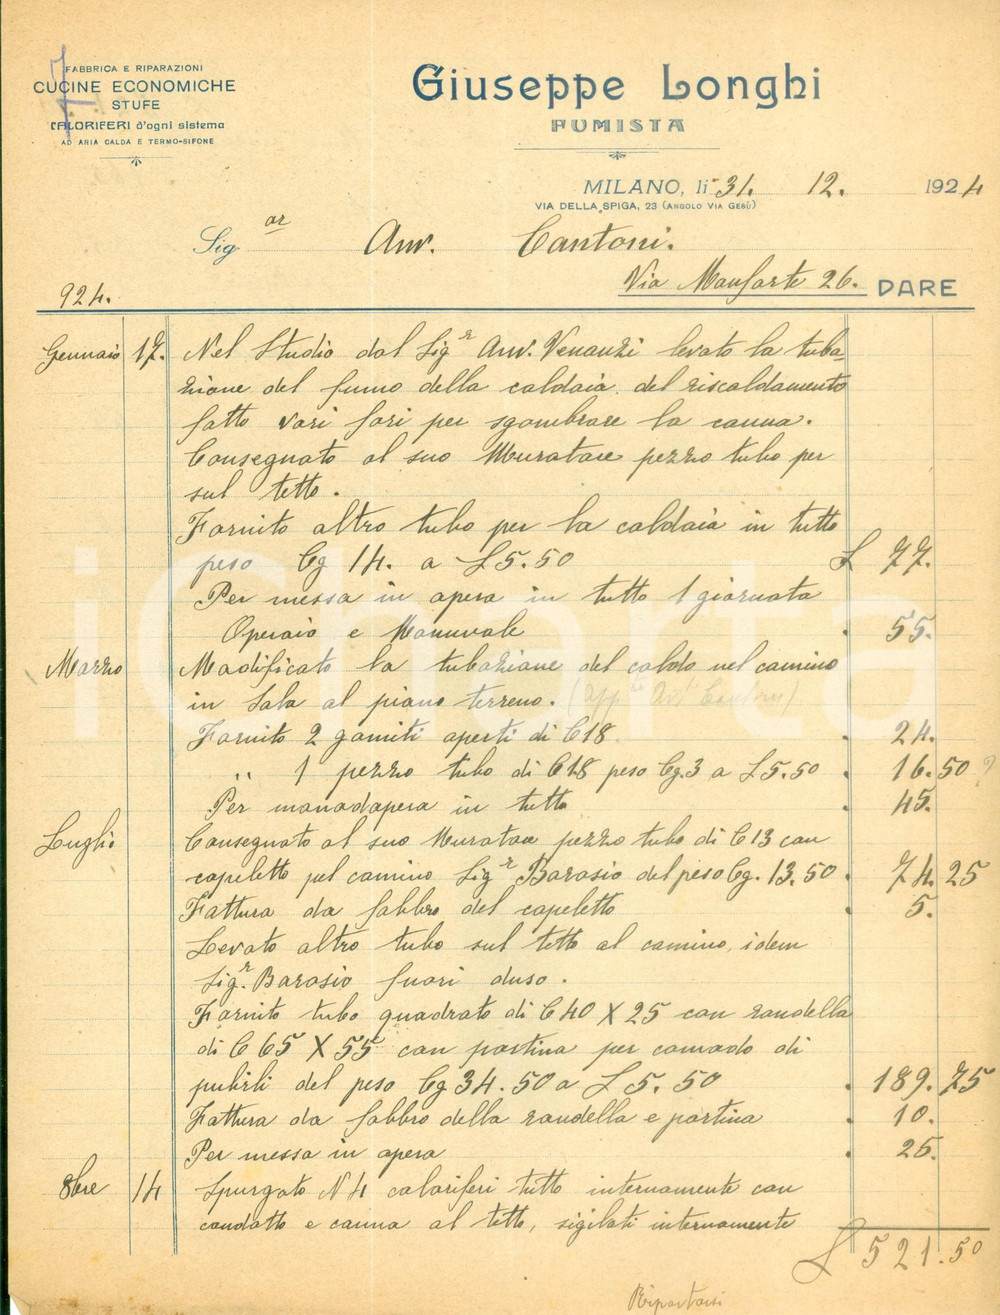 FABBRICA E RIPARAZIONI
CUCINE ECONOMICHE
STUFE
CALORIFERI d'ogni sistema
AD ARIA CALDA E TERMO-SIFONE
Giuseppe Longhi
FUMISTA
MILANO, li 31. 12. 1924
VIA DELLA SPIGA, 23 (ANGOLO VIA GESÙ)
Sig.or Avv. Cantoni.
Via Monforte 26. DARE
924.
Gennaio 17. Nel Studio dal Sigr Avv. Venanzi levato la tuba-
zione del fumo della caldaia del riscaldamento
fatto vari fori per sgombrare la canna.
Consegnato al suo Muratore pezzo tubo per
sul tetto.
Fornito altro tubo per la caldaia in tutto
peso Cg 14. a £5.50 £ 77.
Per messa in opera in tutto 1 giornata
Operaio e Manuvale . 55.
Marzo Modificato la tubazione del caldo nel camino
in Sala al piano terreno.
Fornito 2 gomiti aperti di C18 . 24.
" 1 pezzo tubo di C18 peso Cg.3 a £5.50 . 16.50 ?
Per manodapera in tutto . 45.
Luglio Consegnato al suo Muratore pezzo tubo di C13 con
capeletto pel camino Sigr Barasio del peso Cg. 13.50 . 74.25
Fattura da fabbro del capeletto . 5.
Levato altro tubo sul tetto al camino idem
Sigr. Barasio fuori duso.
Fornito tubo quadrato di C40 X 25 con rondella
di C 65 X 55 con portina per comodo di
pulirli del peso Cg 34.50 a £5.50 . 189.75
Fattura da fabbro della rondella e portina . 10.
Per messa in opera . 25.
8bre 14 Spurgato N 4 caloriferi tutto internamente con
condotto e canna al tetto, sigilati internamente
£ 521.50
Riportarsi
iCharta